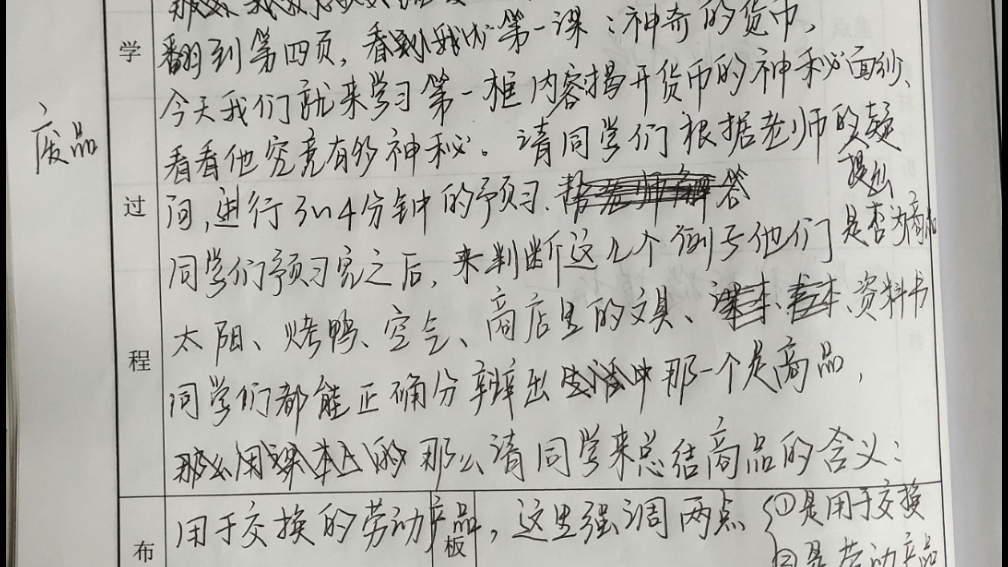 翻到第四页，看到我们第一课：神奇的货币，
今天我们就来学习第一框内容揭开货币的神秘面纱、
看看他究竟有多神秘。请同学们根据老师的疑
提出
问，进行3~4分钟的预习、帮老师解答
同学们预习完之后，来判断这几个例子他们是否为商品
太阳、烤鸭、空气、商店里的文具、课本、书本、资料书
同学们都能正确分辨出生活中那一个是商品，
那么用课本上的那么请同学来总结商品的含义：
用于交换的劳动产品，这里强调两点 ①是用于交换
②是劳动产品
废品
学
过
程
布
板